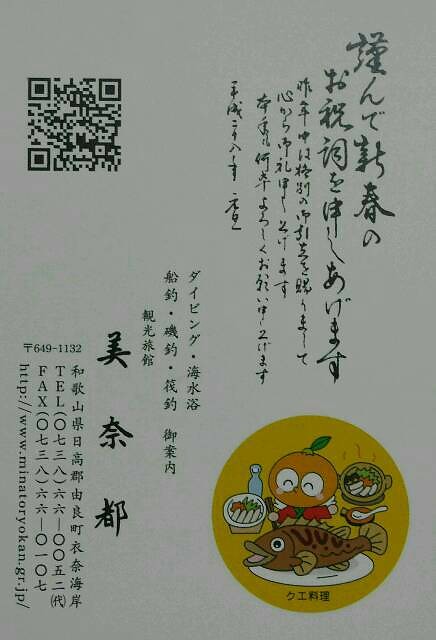 謹んで新春の
お祝詞を申しあげます
昨年中は格別の御引立を賜りまして
心から御礼申し上げます
本年も何卒よろしくお願い申し上げます
平成二十八年 元旦
ダイビング・海水浴
船釣・磯釣・筏釣 御案内
観光旅館
美奈都
〒649-1132
和歌山県日高郡由良町衣奈海岸
TEL(〇七三八)六六―〇〇五二(代)
FAX(〇七三八)六六―〇一〇七
http://www.minatoryokan.gr.jp/
クエ料理